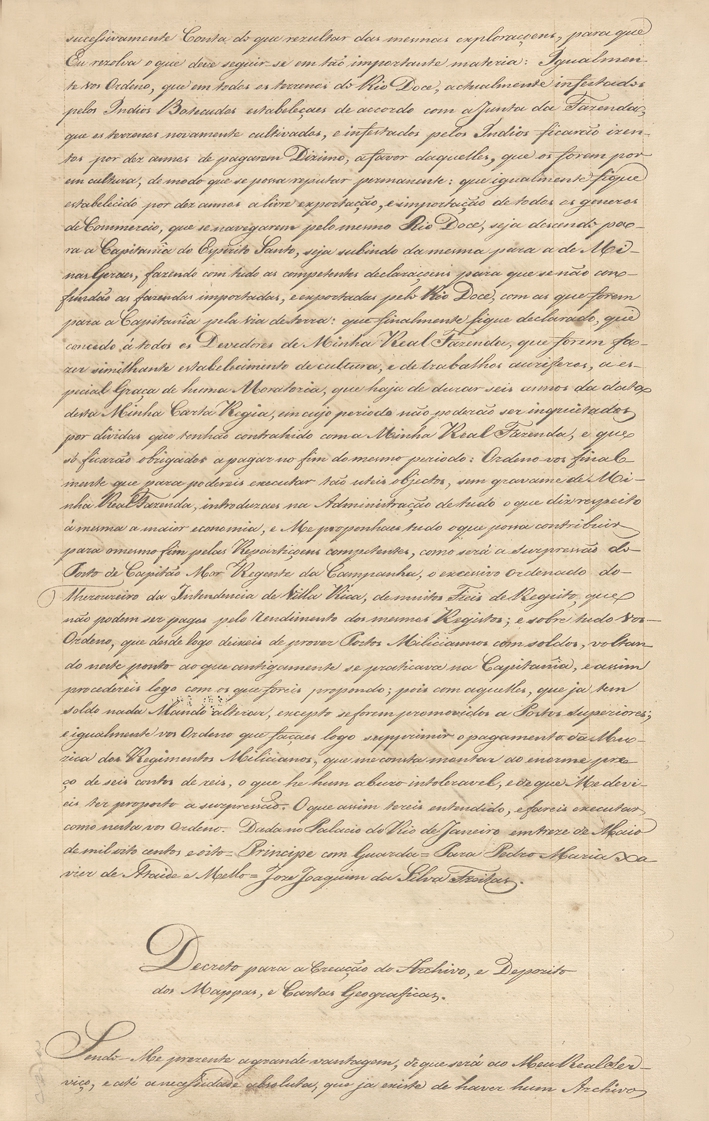 sucessivamente Conta do que rezultar das mesmas exploraçoens, para que
Eu rezolva o que deve seguir-se em tão importante materia: Igualmen-
te vos Ordeno, que em todos os terrenos do Rio Doce, actualmente infestados
pelos Indios Botecudos estabeleçaes de accordo com a Junta da Fazenda,
que os terrenos novamente cultivados, e infestados pelos Indios ficarão izen-
tos por dez annos de pagarem Dizimo, a favor daquelles, que os forem por
em cultura, de modo que se possa reputar permanente: que igualmente fique
estabelecido por dez annos a livre exportação, e importação de todos os generos
de Commercio, que se navegarem pelo mesmo Rio Doce, seja descendo pa-
ra a Capitania do Espirito Santo, seja subindo da mesma para a de Mi-
nas Geraes, fazendo com tudo as competentes declaraçoens para que se não con-
fundão as fazendas importadas, e exportadas pelo Rio Doce, com as que forem
para a Capitania pela via de terra: que finalmente fique declarado, que
concedo á todos os Devedores de Minha Real Fazenda, que forem fa-
zer similhante estabelecimento de cultura, e de trabalhos auriferos, a es-
pecial Graça de huma Moratoria, que haja de durar seis annos da data
desta Minha Carta Regia, em cujo periodo não poderão ser inquietados
por dividas que tenhão contrahido com a Minha Real Fazenda, e que
só ficarão obrigados a pagar no fim do mesmo periodo: Ordeno-vos final-
mente que para podereis executar tão uteis objectos, sem gravame de Mi-
nha Real Fazenda, introduzaes na Administração de tudo o que diz respeito
á mesma a maior economia, e Me proponhaes tudo o que possa contribuir
para o mesmo fim pelas Repartiçoens competentes, como será a surpressão do
Posto de Capitão Mor Regente da Campanha, o excessivo ordenado do
Thezoureiro da Intendencia de Villa Rica, de muitos Fieis de Registo, que
não podem ser pagos pelo rendimento dos mesmos Registos; e sobre tudo vos
Ordeno, que desde logo deixeis de prover Postos Milicianos com soldos, voltan-
do neste ponto ao que antigamente se praticava na Capitania, e assim
procedereis logo com os que foreis propondo; pois com aquelles, que ja tem
soldo nada Mando alterar, excepto se forem promovidos a Postos superiores;
e igualmente vos Ordeno que façaes logo supprimir o pagamento da Mu-
zica dos Regimentos Milicianos, que me consta montar ao enorme pre-
ço de seis contos de reis, o que he hum abuzo intoleravel, e de que Me devi-
eis ter proposto a surpressão. O que assim tereis entendido, e fareis executar
como nesta vos Ordeno. Dada no Palacio do Rio de Janeiro em treze de Maio
de mil oito centos e oito = Principe com Guarda = Para Pedro Maria Xa-
vier de Ataide e Mello = Joze Joaquim da Silva Freitas.
Decreto para a Creação do Archivo, e Depozito
dos Mappas, e Cartas Geograficas.
Sendo-Me prezente a grande vantagem, de que será ao Meu Real Ser-
viço, e até a necessidade absoluta, que ja existe de haver hum Archivo